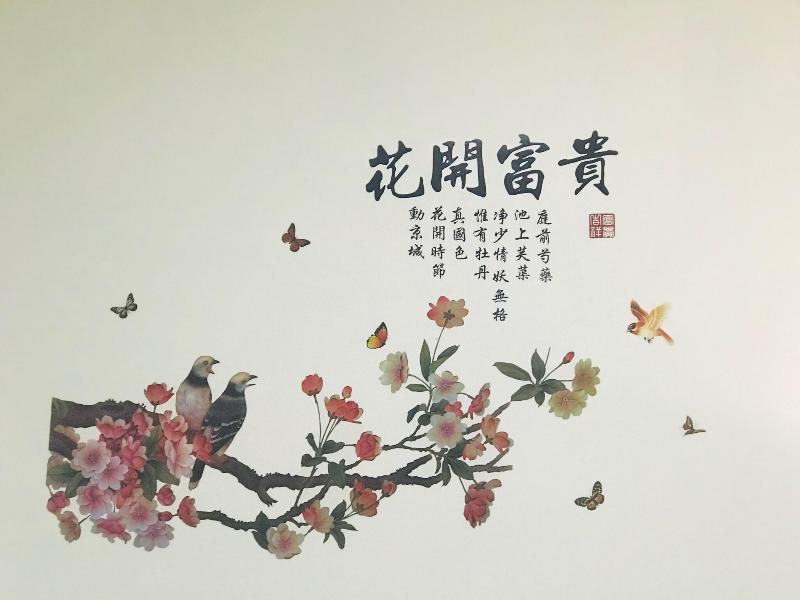 花開富貴
庭前芍藥
池上芙蕖
净少情妖無格
惟有牡丹
真國色
花開時節
動京城
富貴
吉祥